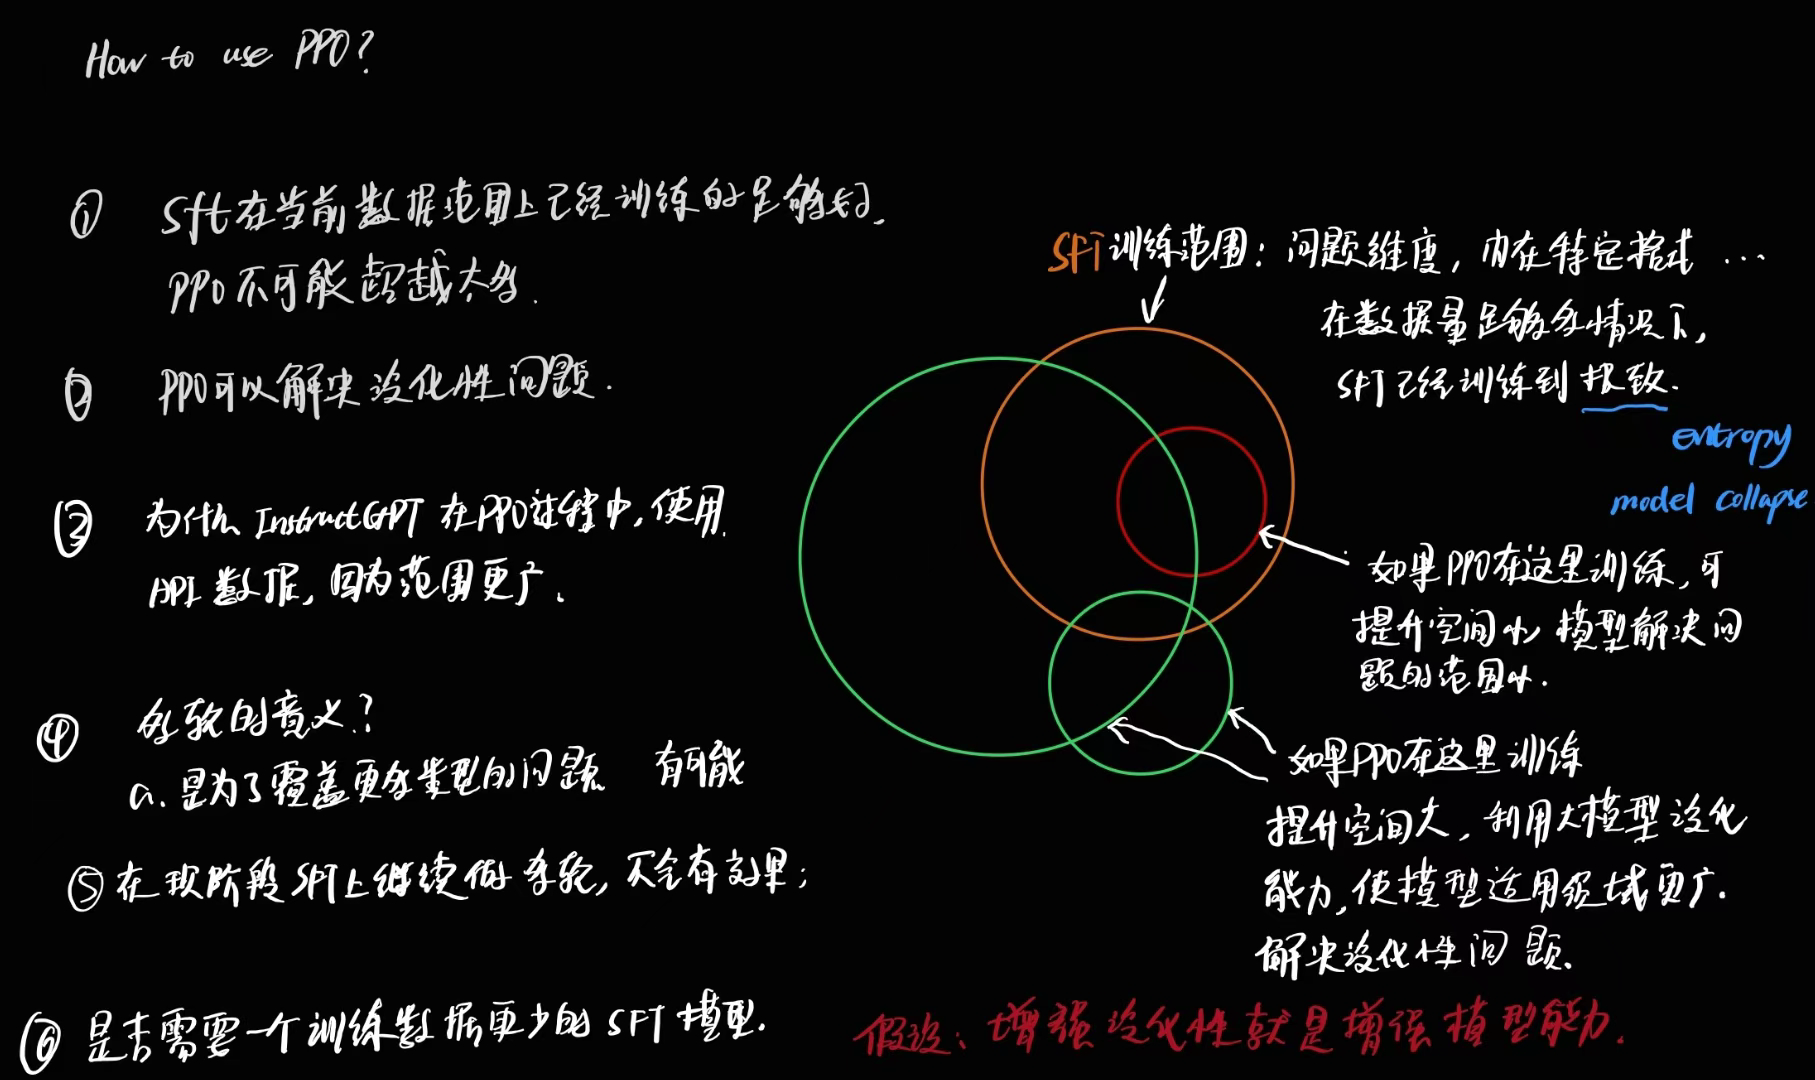 How to use PPO?
① Sft在当前数据范围上已经训练的足够好.
PPO不可能超越太多.
② PPO可以解决泛化性问题.
③ 为什么InstructGPT在PPO过程中,使用
API数据,因为范围更广.
④ 多轮的意义?
a. 是为了覆盖更多类型的问题 有可能
⑤ 在现阶段SFT上继续做多轮,不会有效果;
⑥ 是否需要一个训练数据更少的SFT模型.
SFT训练范围: 问题维度, 内在特定格式 ...
在数据量足够多情况下,
SFT已经训练到极致.
entropy
model collapse
如果PPO在这里训练,可
提升空间小,模型解决问
题的范围小.
如果PPO在这里训练
提升空间大,利用大模型泛化
能力,使模型适用领域更广.
解决泛化性问题.
假设: 增强泛化性就是增强模型能力.